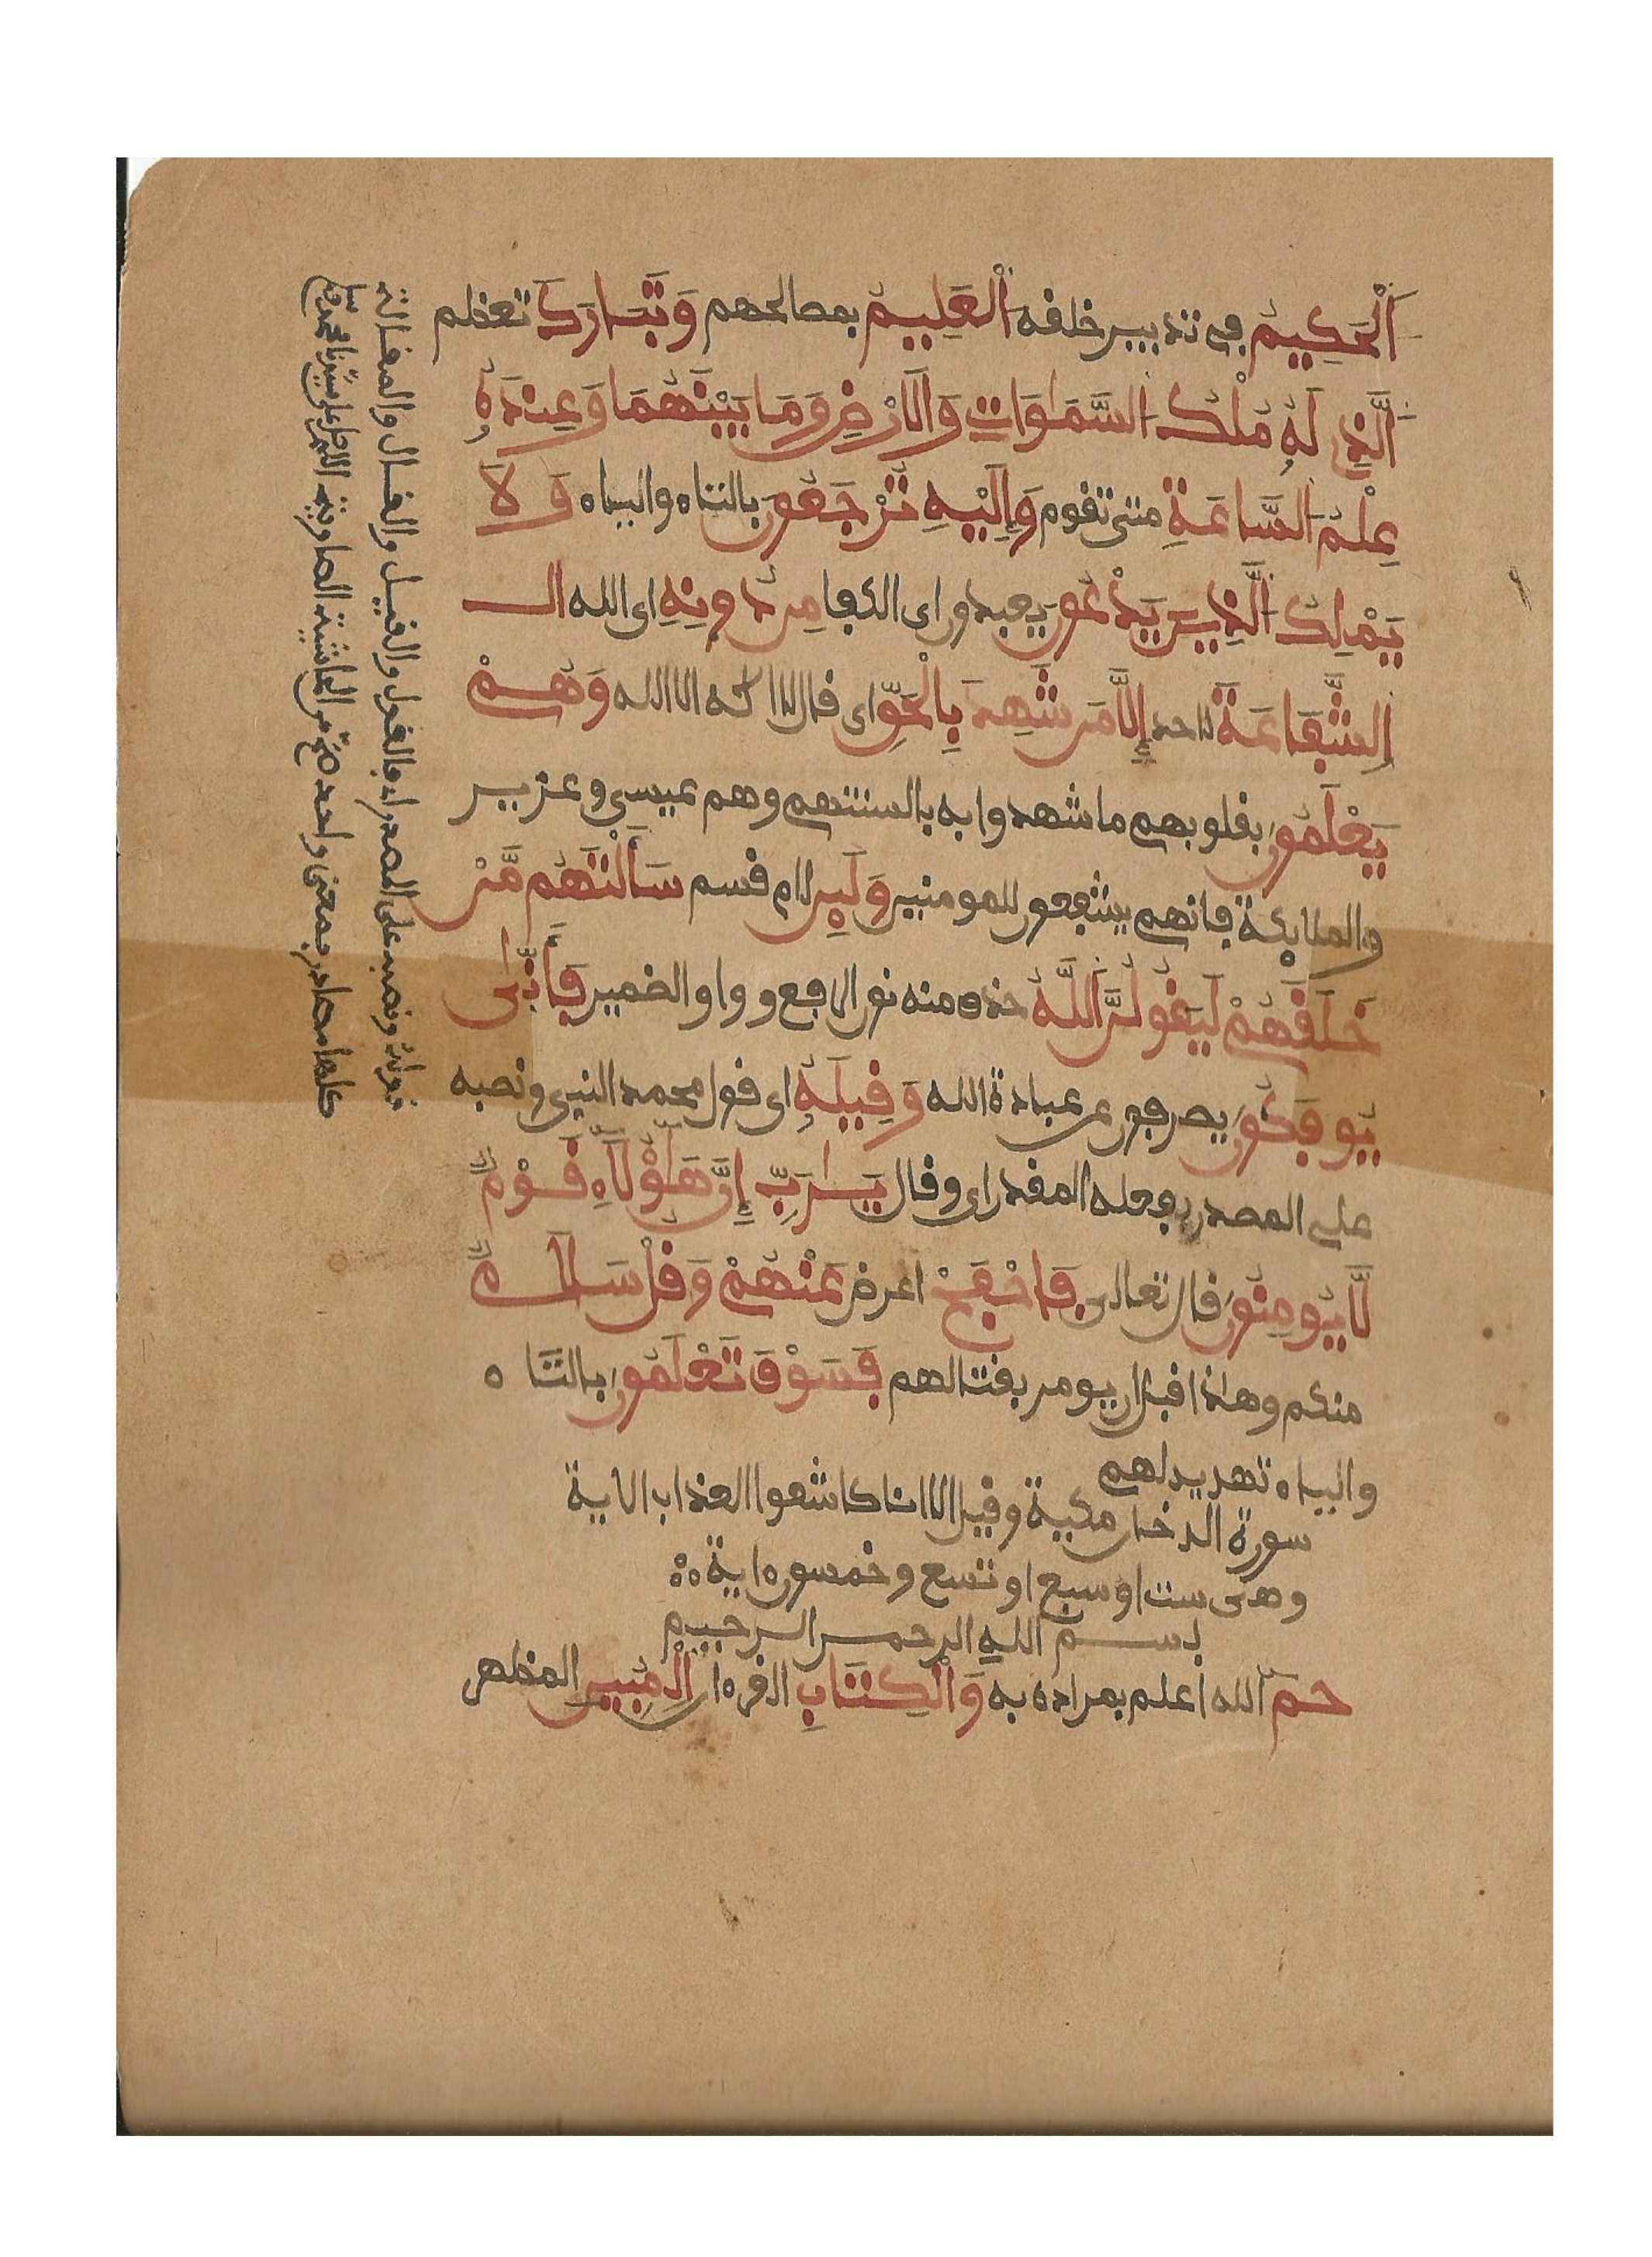 اَلْحَكِيمُ في تدبير خلقه اَلْعَلِيمُ بمصالحهم وَتَبَارَكَ تعظم
اَلَّذِي لَهُ مُلْكُ السَّمَاوَاتِ وَالَارْضِ وَمَا بَيْنَهُمَا وَعِندَهُ
عِلْمُ السَّاعَةِ متى تقوم وَإِلَيْهِ تُرْجَعُونَ بالتاء والياء وَلَا
يَمْلِكُ الَّذِينَ يَدْعُونَ يعبدون اى الكفا مِن دُونِهِ اى الله الـ
الشَّفَاعَةَ لاحد إِلَّا مَن شَهِدَ بِالْحَقِّ اى قال لا اله الا الله وَهُمْ
يَعْلَمُونَ بقلوبهم ما شهدوا به بالسنتهم وهم عيسى وعزير
والملايكة فانهم يشفعون للمومنين وَلَين لام قسم سَأَلْتَهُم مَّنْ
خَلَقَهُمْ لَيَقُولُنَّ اَللَّهُ حذف منه نون الرفع وواو الضمير فَأَنَّى
يُوفَكُونَ يصرفون عن عبادة الله وَقِيلَهُ اى قول محمد النبي ونصبه
على المصدر بفعله المقدر اى وقال يَارَبِّ إِنَّ هَؤُلَاءِ قَوْمٌ
لَّا يُومِنُونَ قال تعالى فَاصْفَحْ اعرض عَنْهُمْ وَقُلْ سَلَامٌ
منكم وهاذا قبل ان يومر بقتالهم فَسَوْفَ تَعْلَمُونَ بالتاء
والياء تهديد لهم
سورة الدخان مكية وقيل الا انا كاشفوا العذاب الاية
وهى ست او سبع او تسع وخمسون ءاية
بسم الله الرحمن الرحيم
حم الله اعلم بمراده به وَالْكِتَابِ القرءان الْمُبِينِ المظهر
قوله ونصبه على المصدر اى فالقول والقيل والقال والمقالة
كلها مصادر بمعنى واحد من الحاشية الصاوية اللهم صل على سيدنا محمد